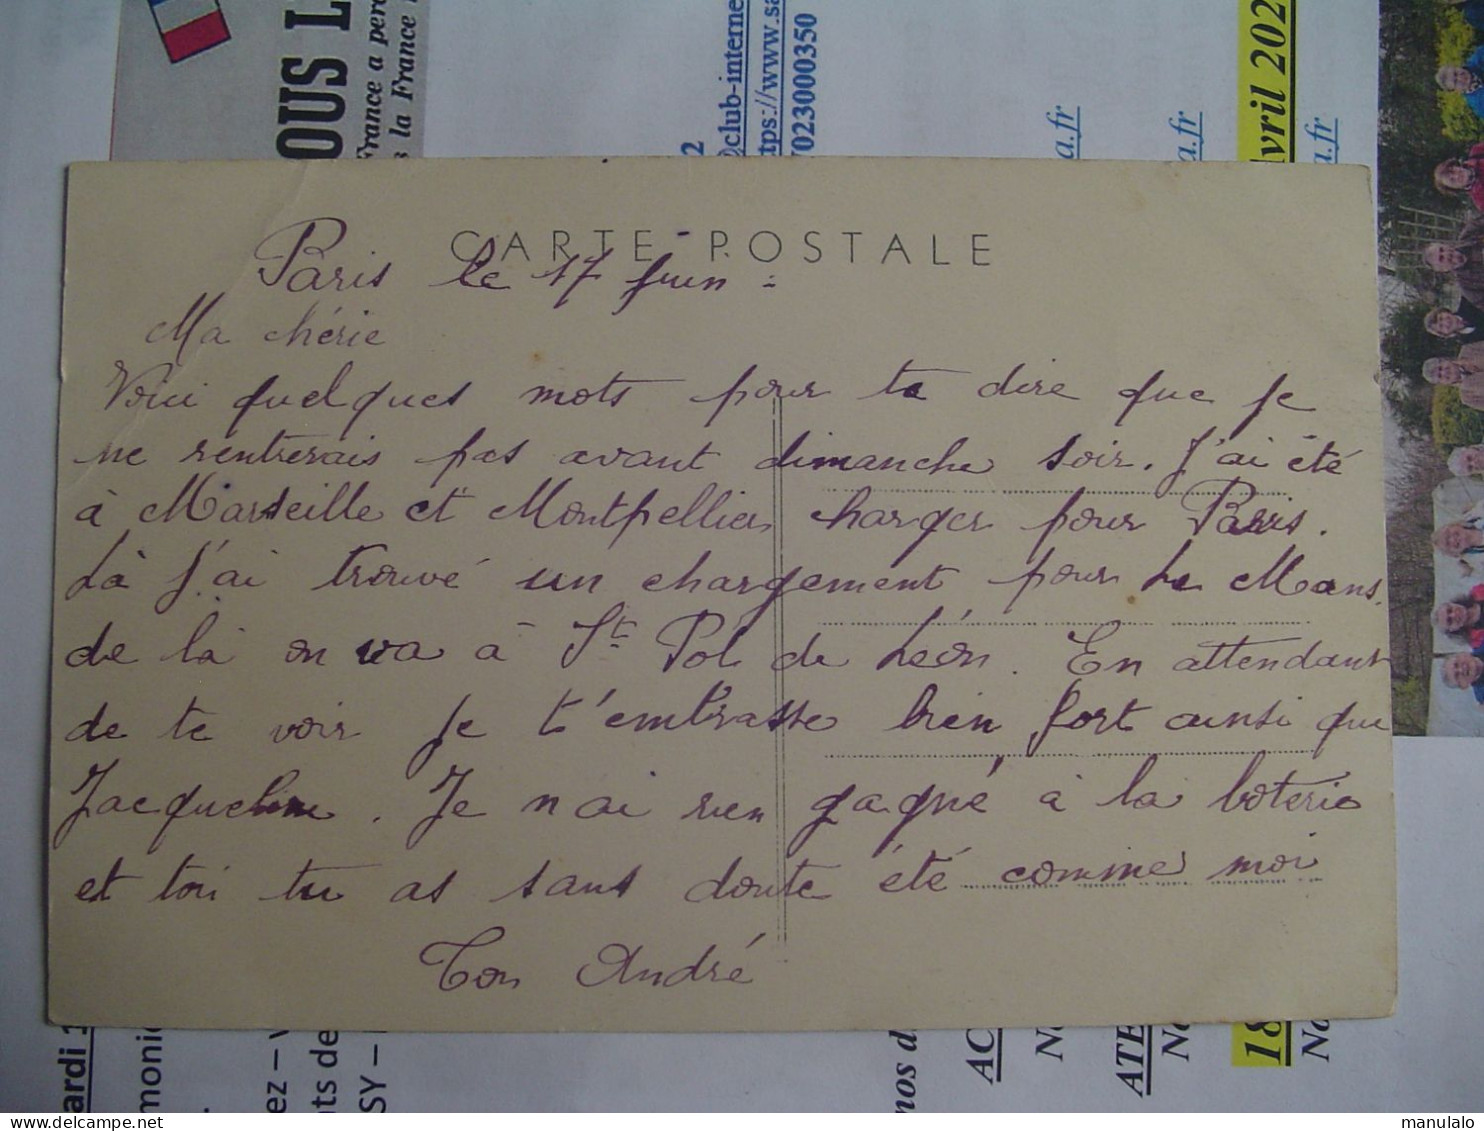 OUS L
France a perd
s la France
2
@club-interne
https://www.sa
07023000350
a.fr
a.fr
Avril 202
a.fr
CARTE POSTALE
Paris le 17 Juin
Ma chérie
Voici quelques mots pour te dire que je
ne rentrerais pas avant dimanche soir. J'ai été
à Marseille et Montpellier charger pour Paris.
Là j'ai trouvé un chargement pour Le Mans.
de là on va à St Pol de Léon. En attendant
de te voir je t'embrasse bien fort ainsi que
Jacqueline. Je n'ai rien gagné à la loterie
et toi tu as sans doute été comme moi
Ton André
ardi 1
monic
ez – V
nts de
SY –
nos d
AC
No
ATE
No
18
No
www.delcampe.net
manulalo